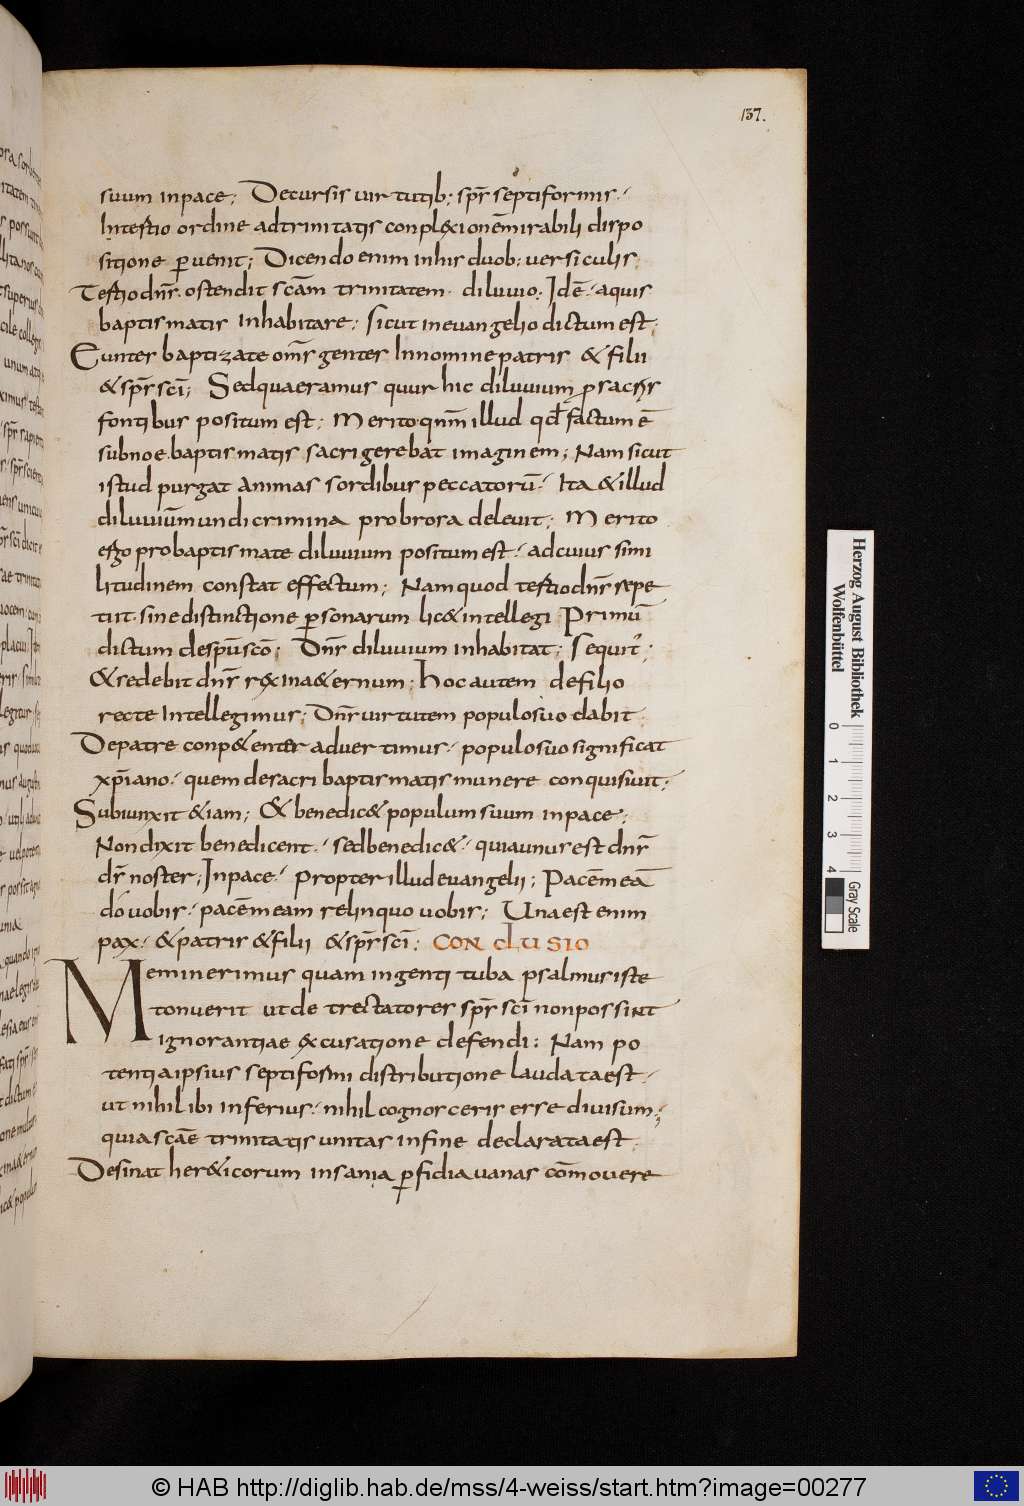 137.
suum inpace; Decursis uirtutib; sp̄s septiformis.
In testio ordine adtrinitatis conplexionē mirabili dispo
sitione ꝑuenit; Dicendo enim inhis duob; uersiculis;
Testio dn̄s. ostendit sc̄am trinitatem diluuio; Idē aquis
baptismatis inhabitare; Sicut in euangelio dictum est;
Euntes baptizate om̄s gentes Innomine patris & filii
& sp̄s sc̄i; Sed quaeramus quur hic diluuium p sacris
fontibus positum est; Merito qn̄m illud qd̄ factum ē
subnoe. baptismatis sacri gerebat imaginem; Nam sicut
istud purgat animas sordibus peccatorū. Ita & illud
diluuiū mundi crimina probrosa deleuit; Merito
ergo probaptismate diluuium positum est. adcuius simi
litudinem constat effectum; Nam quod testio dn̄s repe
tiit. sine distinctione ꝑsonarum lic& intellegi Primū
dictum despū scō; Dn̄s diluuium inhabitat; Sequit᷑;
& sedebit dn̄s rex in a&ernum; Hoc autem defilio
recte intellegimus; Dn̄s uirtutem populo suo dabit
Depatre conp&enter aduertimus. populo suo significat
xp̄iano. quem desacri baptismatis munere conquisiuit;
Subiunxit &iam; & benedic& populum suum inpace;
Non dixit benedicent. sed benedic&. quia unus est dn̄s
ds̄ noster; Inpace. propter illud euangelii; Pacē meā
do uobis. pacē meam relinquo uobis; Una est enim
pax. & patris & filii & sp̄s sc̄i; CONCLUSIO
Meminerimus quam ingenti tuba psalmus iste
tonuerit ut de trectatores sp̄s sc̄i non possint
ignorantiae excusatione defendi; Nam po
tentia ipsius septiformi distributione laudata est.
ut nihil ibi inferius. nihil cognosceris esse diuisum;
quia sc̄ae trinitatis unitas infine declarata est.
Desinat her&icorum insania ꝑfidia uanas cōmouere
Herzog August Bibliothek
Wolfenbüttel
0 1 2 3 4
Gray Scale
© HAB http://diglib.hab.de/mss/4-weiss/start.htm?image=00277